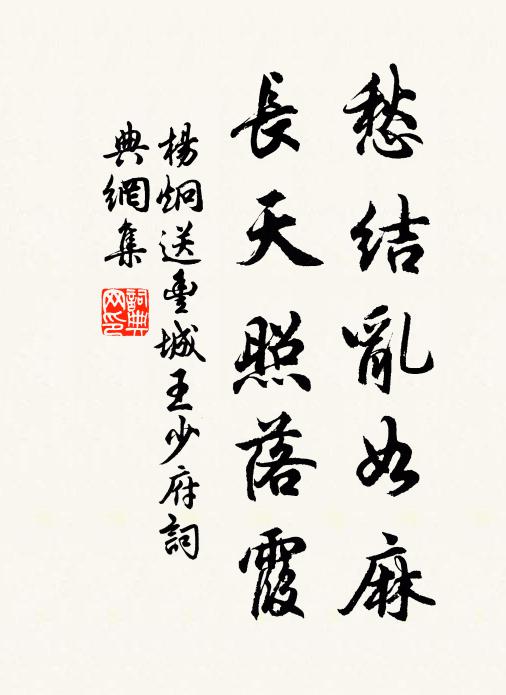 愁结亂如麻
長天照落霞
楊炯送豊城王少府詞
典網集
詞典网印